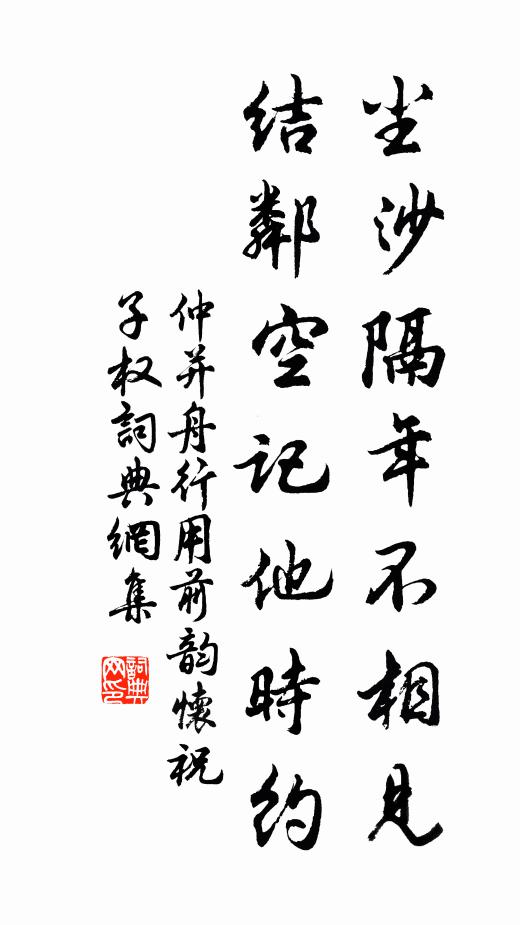 尘沙隔年不相見
結鄰空記他時約
仲并舟行用前韵懷祝
子权詞典網集
詞典网印